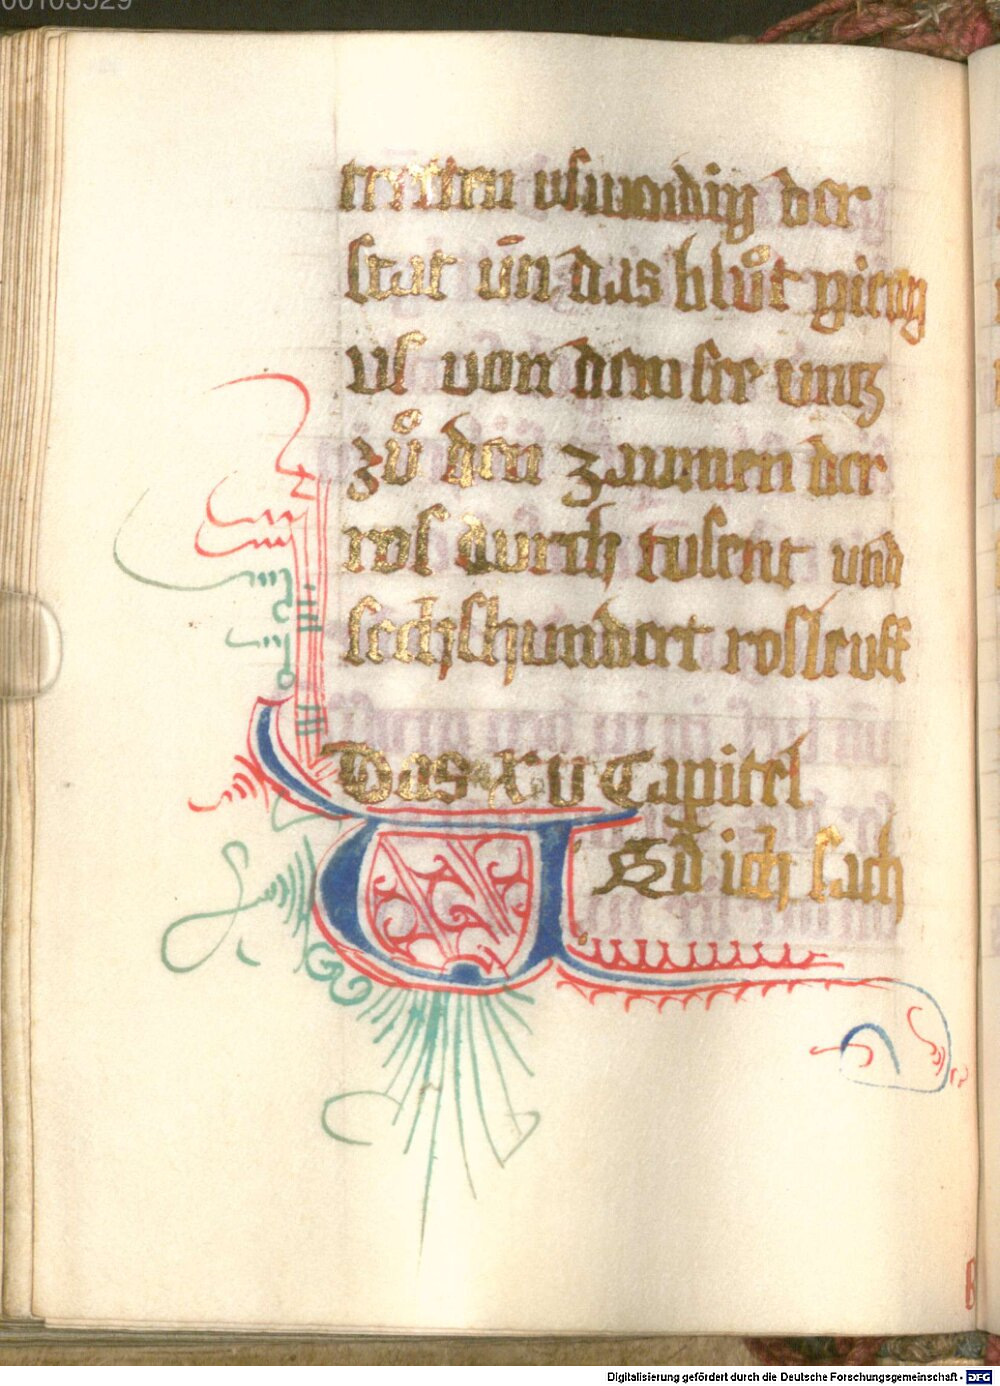 00103529
tretten uswendig der
stat uñ das bluͦt gieng
us von dem see untz
zuͦ den zaumen der
ros durch tusent und
sechshundert rosleuff
Das xv Capitel
Und ich sach
Digitalisierung gefördert durch die Deutsche Forschungsgemeinschaft - DFG